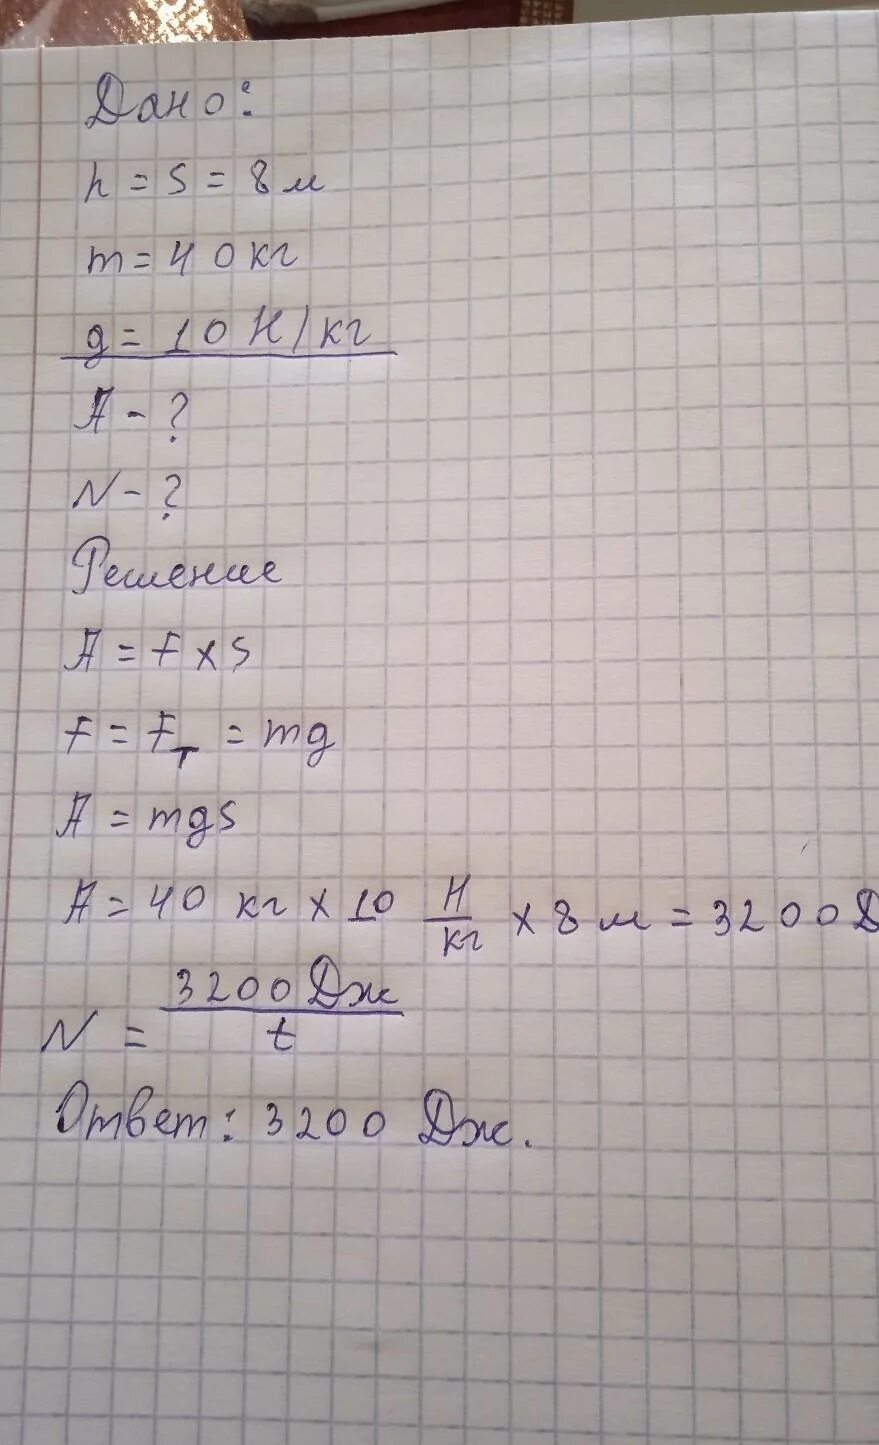 Дано:
h = S = 8 м
m = 40 кг
g = 10 Н/кг
A - ?
N - ?
Решение
A = F x S
F = Fт = mg
A = mgs
A = 40 кг x 10 Н/кг x 8 м = 3200 Д
N = 3200 Дж / t
Ответ: 3200 Дж.